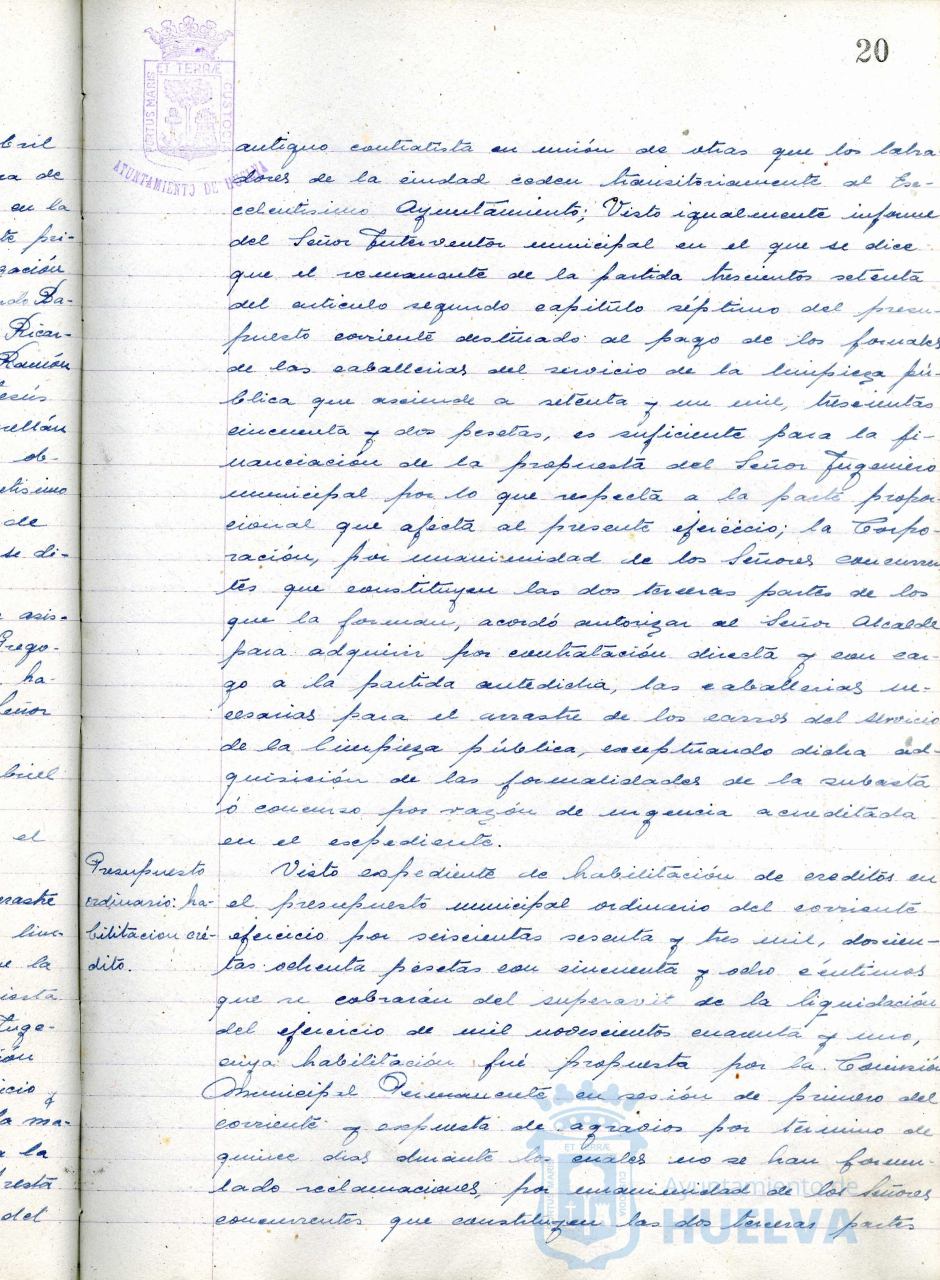 20
PORTUS MARIS ET TERRÆ CUSTODIA
AYUNTAMIENTO DE HUELVA
bril
ra de
en la
te pri-
gación
ndo Ba-
Ricar-
Ramón
esús
rellán
ob-
etisimo
de
se di-
asis-
Grego-
ha-
Señor
briel
el
rrastre
lim-
e la
uesta
Inge-
ión
icio y
la ma-
a la
resta
del
antiguo contratista en unión de otras que los labra-
dores de la ciudad ceden transitoriamente al Ex-
celentisimo Ayuntamiento; Visto igualmente informe
del Señor Interventor municipal en el que se dice
que el remanente de la partida trescientos setenta
del articulo segundo capitulo séptimo del presu-
puesto corriente destinado al pago de los jornales
de las caballerias del servicio de la limpieza pú-
blica que asciende a setenta y un mil, trescientas
cincuenta y dos pesetas, es suficiente para la fi-
nanciación de la propuesta del Señor Ingeniero
municipal por lo que respecta a la parte propor
cional que afecta al presente ejercicio; la Corpo-
ración, por unanimidad de los Señores concurren
tes que constituyen las dos terceras partes de los
que la forman, acordó autorizar al Señor Alcalde
para adquirir por contratación directa y con car-
go a la partida antedicha, las caballerias ne-
cesarias para el arrastre de los carros del servicio
de la limpieza pública, exceptuando dicha ad-
quisición de las formalidades de la subasta
ó concurso por razón de urgencia acreditada
en el expediente.
Presupuesto
ordinario: ha-
bilitacion cré-
dito.
Visto expediente de habilitación de creditos en
el presupuesto municipal ordinario del corriente
ejercicio por seiscientas sesenta y tres mil, doscien-
tas ochenta pesetas con cincuenta y ocho céntimos
que se cobrarán del superavit de la liquidación
del ejercicio de mil novescientos cuarenta y uno,
cuya habilitación fué propuesta por la Comisión
Municipal Permanente en sesión de primero del
corriente y expuesta de agravios por termino de
quince dias durante los cuales no se han formu-
lado reclamaciones, por unanimidad de los Señores
concurrentes que constituyen las dos terceras partes
PORTUS MARIS ET TERRÆ CUSTODIA
Ayuntamiento de
HUELVA